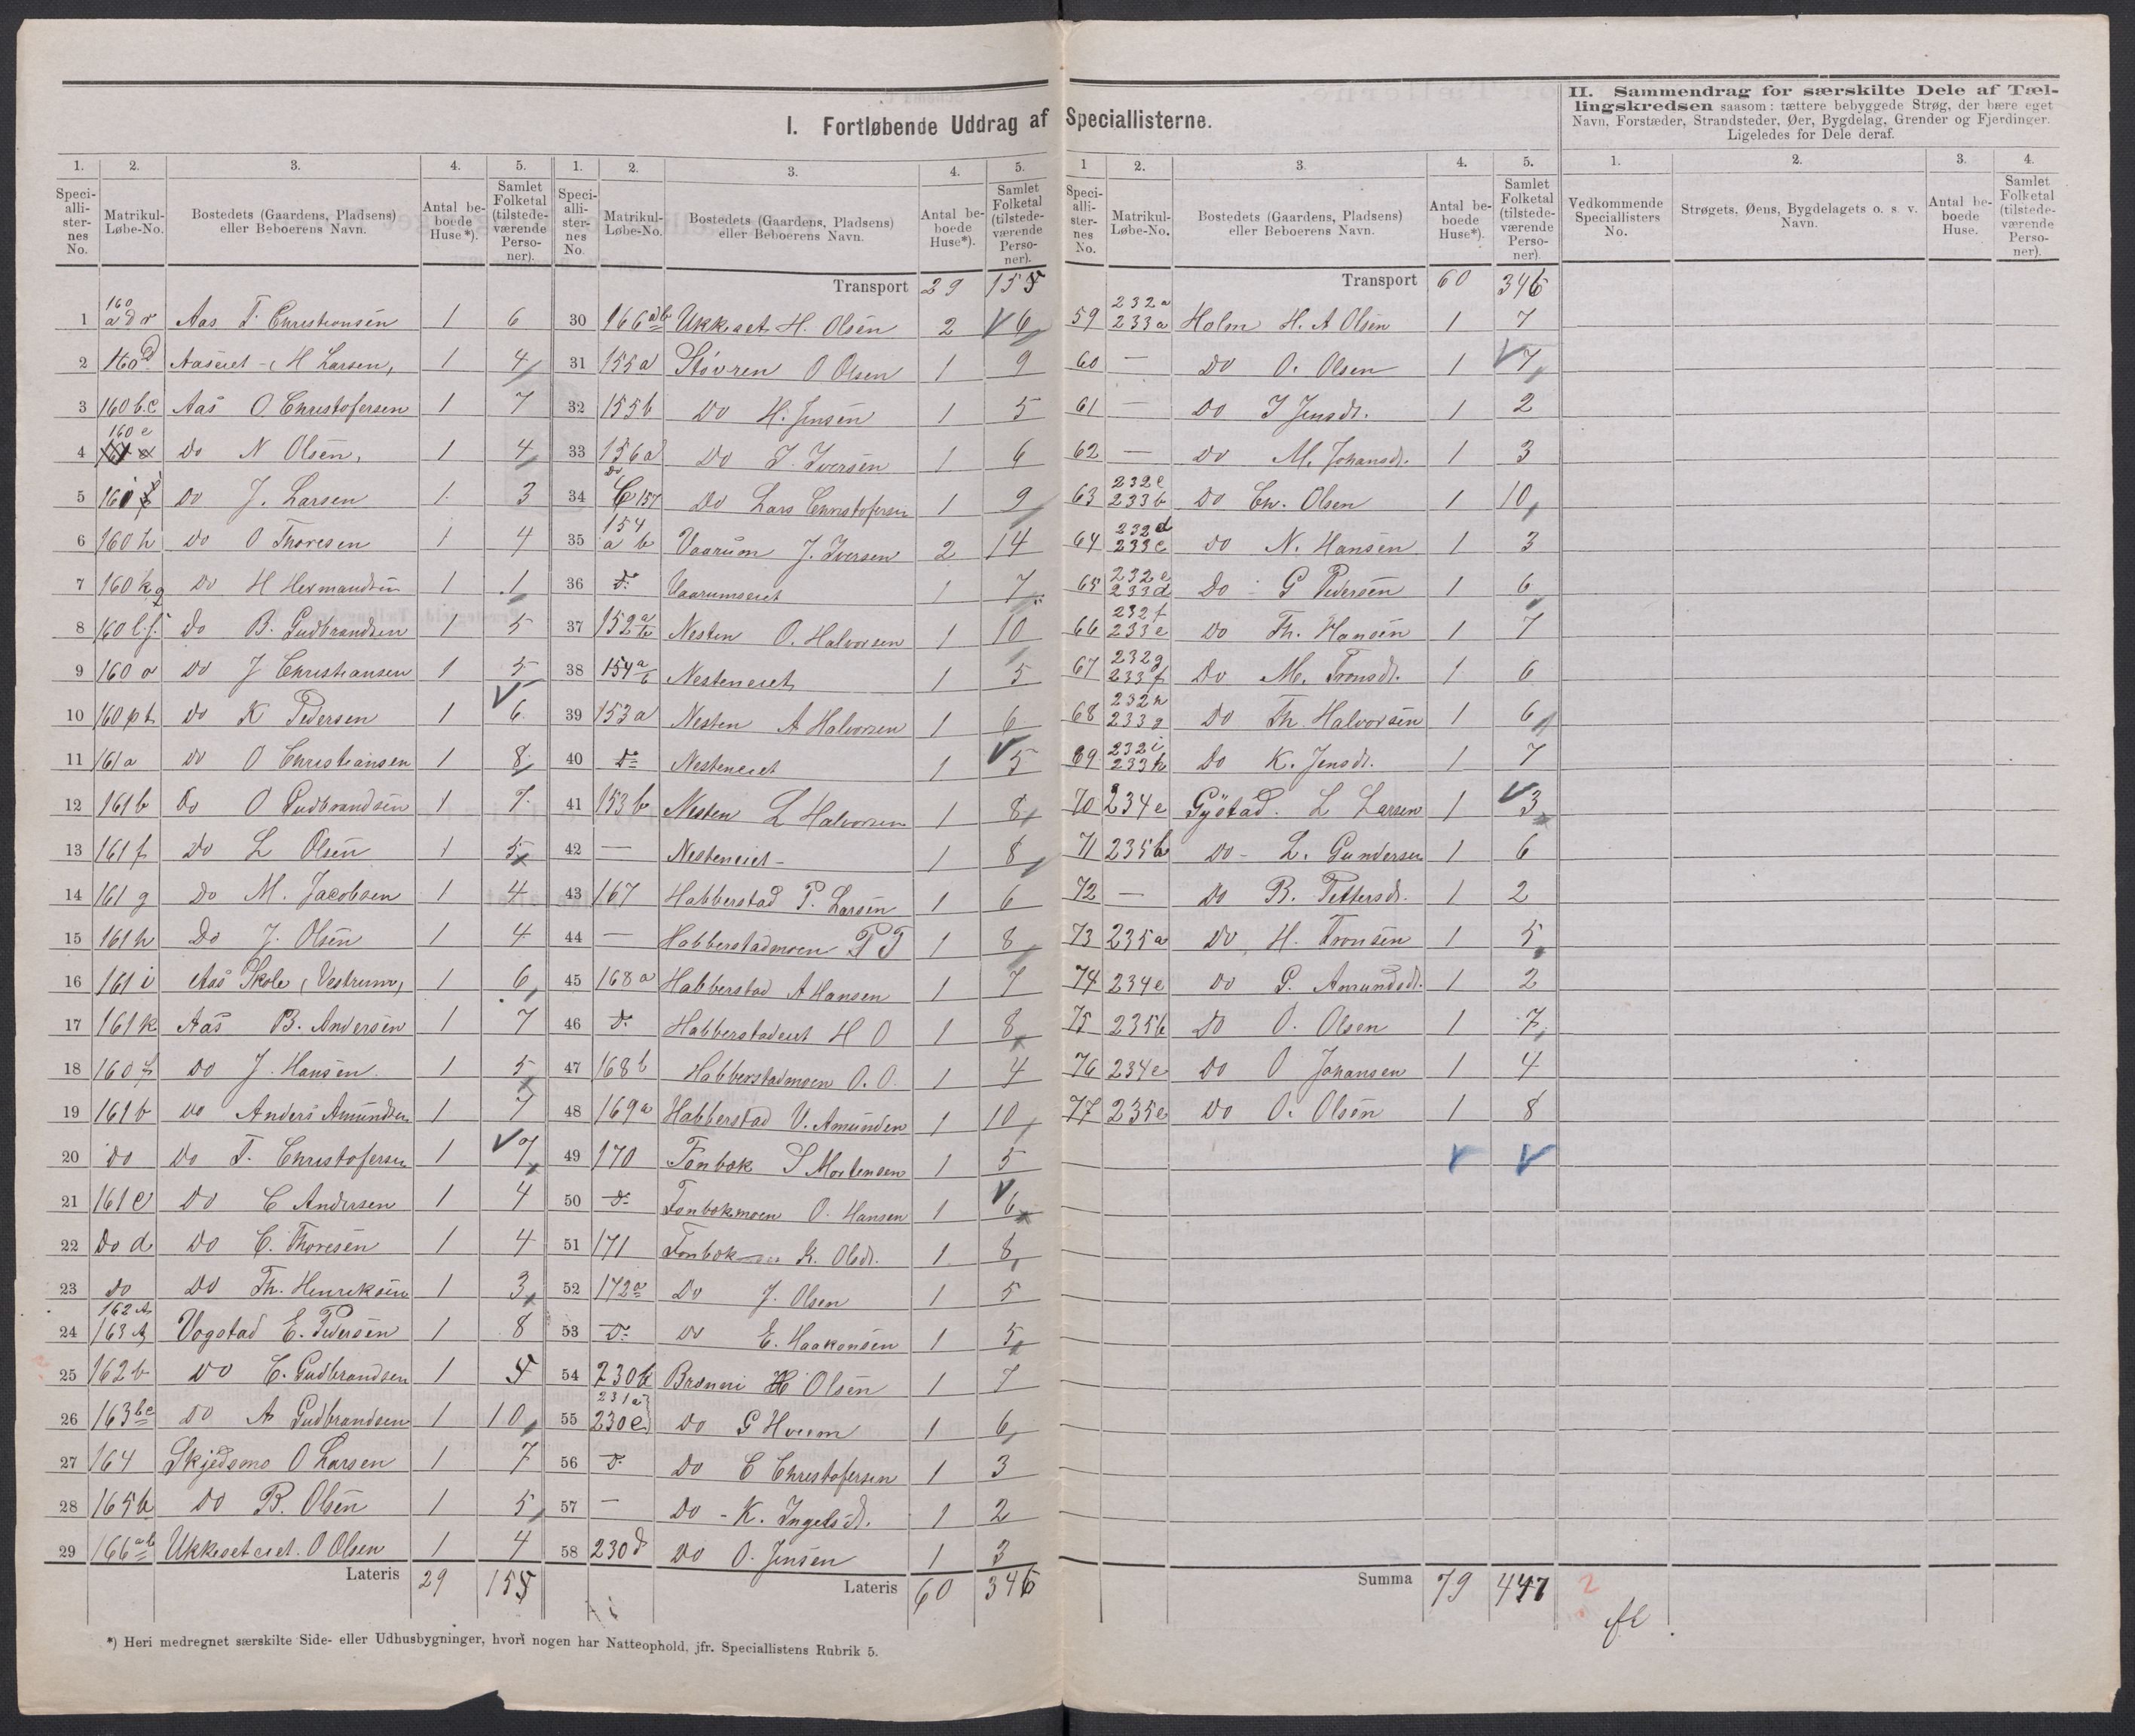 I. Fortløbende Uddrag af Speciallisterne.
II. Sammendrag for særskilte Dele af Tæl-
lingskredsen saasom: tættere bebyggede Strøg, der bære eget
Navn, Forstæder, Strandsteder, Øer, Bygdelag, Grender og Fjerdinger.
Ligeledes for Dele deraf.
1. 2. 3. 4. 5.
Speci-alli-ster-nes No. Matrikul-Løbe-No. Bostedets (Gaardens, Pladsens) eller Beboerens Navn. Antal be-boede Huse*). Samlet Folketal (tilstede-værende Perso-ner).
1 160 a d o Aas T. Christiansen 1 6
2 160 d Aaseiet - M Larsen, 1 4
3 160 b.c Aas O Christofersen 1 7
4 160 e Do N Olsen, 1 4
5 160 Do J. Larsen 1 3
6 160 h Do O Thoresen 1 4
7 160 k g Do H Hermandsen 1 1
8 160 l.f. Do B. Gudbrandsen 1 5
9 160 o Do J Christiansen 1 5
10 160 p t Do K Pedersen 1 6
11 161 a Do O Christiansen 1 8
12 161 b Do O Gudbrandsen 1 7
13 161 f Do L Olsen 1 5
14 161 g Do M. Jacobsen 1 4
15 161 h Do J. Olsen 1 4
16 161 i Aas Skole (Vestrum) 1 6
17 161 k Aas B. Andersen 1 7
18 160 f Do J. Hansen 1 5
19 161 b Do Anders Amundsen 1 7
20 Do Do T. Christofersen 1 7
21 161 c Do C Andersen 1 4
22 Do d Do C. Thoresen 1 4
23 Do Do Th. Henriksen 1 3
24 162 a 163 a Vogstad E. Pedersen 1 8
25 162 b Do C. Gudbrandsen 1
26 163 b c Do A Gudbrandsen 1 10
27 164 Skjedsmo O Larsen 1 7
28 165 b Do B. Olsen 1 5
29 166 a b Ukkeseteiet. O Olsen 1 4
Lateris 29 155
1. 2. 3. 4. 5.
Speci-alli-ster-nes No. Matrikul-Løbe-No. Bostedets (Gaardens, Pladsens) eller Beboerens Navn. Antal be-boede Huse*). Samlet Folketal (tilstede-værende Perso-ner).
Transport 29 155
30 166 a b Ukkeset H. Olsen 2 6
31 155 a Støvren O Olsen 1 9
32 155 b Do H. Jensen 1 5
33 156 a Do I. Iversen 1 6
34 Do C 157 Do Lars Christofersen 1 9
35 154 a b Vaarum J. Iversen 2 14
36 D. Vaarumseiet 1 7
37 152 a b Nesten O. Halvorsen 1 10
38 154 a b Nesteneiet 1 5
39 153 a Nesten A Halvorsen 1 6
40 D. Nesteneiet 1 5
41 153 b Nesten L Halvorsen 1 8
42 — Nesteneiet - 1 8
43 167 Habberstad P. Larsen 1 6
44 — Habberstadmoen P T 1 8
45 168 a Habberstad A Hansen 1 7
46 D. Habberstadeiet H O 1 8
47 168 b Habberstadmoen O. O. 1 4
48 169 a Habberstad V. Amunden 1 10
49 170 Fonbæk S Mortensen 1 5
50 D. Fonbækmoen O. Hansen 1 6
51 171 Fonbæk K. Olsdr. 1 8
52 172 a Do J. Olsen 1 5
53 D. Do E. Haakonsen 1 5
54 230 b Brønni H Olsen 1 7
55 231 a 230 c Do G Hvum 1 6
56 D. Do C Christofersen 1 3
57 — Do - K. Ingelsdr. 1 2
58 230 d Do O. Jensen 1 3
Lateris 60 346
1 2. 3. 4. 5.
Speci-alli-ster-nes No. Matrikul-Løbe-No. Bostedets (Gaardens, Pladsens) eller Beboerens Navn. Antal be-boede Huse*). Samlet Folketal (tilstede-værende Perso-ner).
Transport 60 346
59 232 a 233 a Holm H. A Olsen 1 7
60 — Do O. Olsen 1 7
61 — Do I Jensdr. 1 2
62 — Do M. Johansdr. 1 3
63 232 c 233 b Do Ch. Olsen 1 10
64 232 d 233 c Do N. Hansen 1 3
65 232 e 233 d Do G Pedersen 1 6
66 232 f 233 e Do Th. Hansen 1 7
67 232 g 233 f Do M. Tronsdr. 1 6
68 232 h 233 g Do Th. Halvorsen 1 6
69 232 i 233 h Do K. Jensdr. 1 7
70 234 e Gystad. L Larsen 1 3
71 235 b Do - L. Gundersen 1 6
72 — Do B. Pettersdr. 1 2
73 235 a Do H. Tronsen 1 5
74 234 e Do G. Amundsdr. 1 2
75 235 b Do O. Olsen 1 7
76 234 e Do O Johansen 1 4
77 235 c Do O. Olsen 1 8
Summa 79 447
1. 2. 3. 4.
Vedkommende Speciallisters No. Strøgets, Øens, Bygdelagets o. s. v. Navn. Antal be-boede Huse. Samlet Folketal (tilstede-værende Perso-ner).
2
*) Heri medregnet særskilte Side- eller Udhusbygninger, hvori nogen har Natteophold, jfr. Speciallistens Rubrik 5.